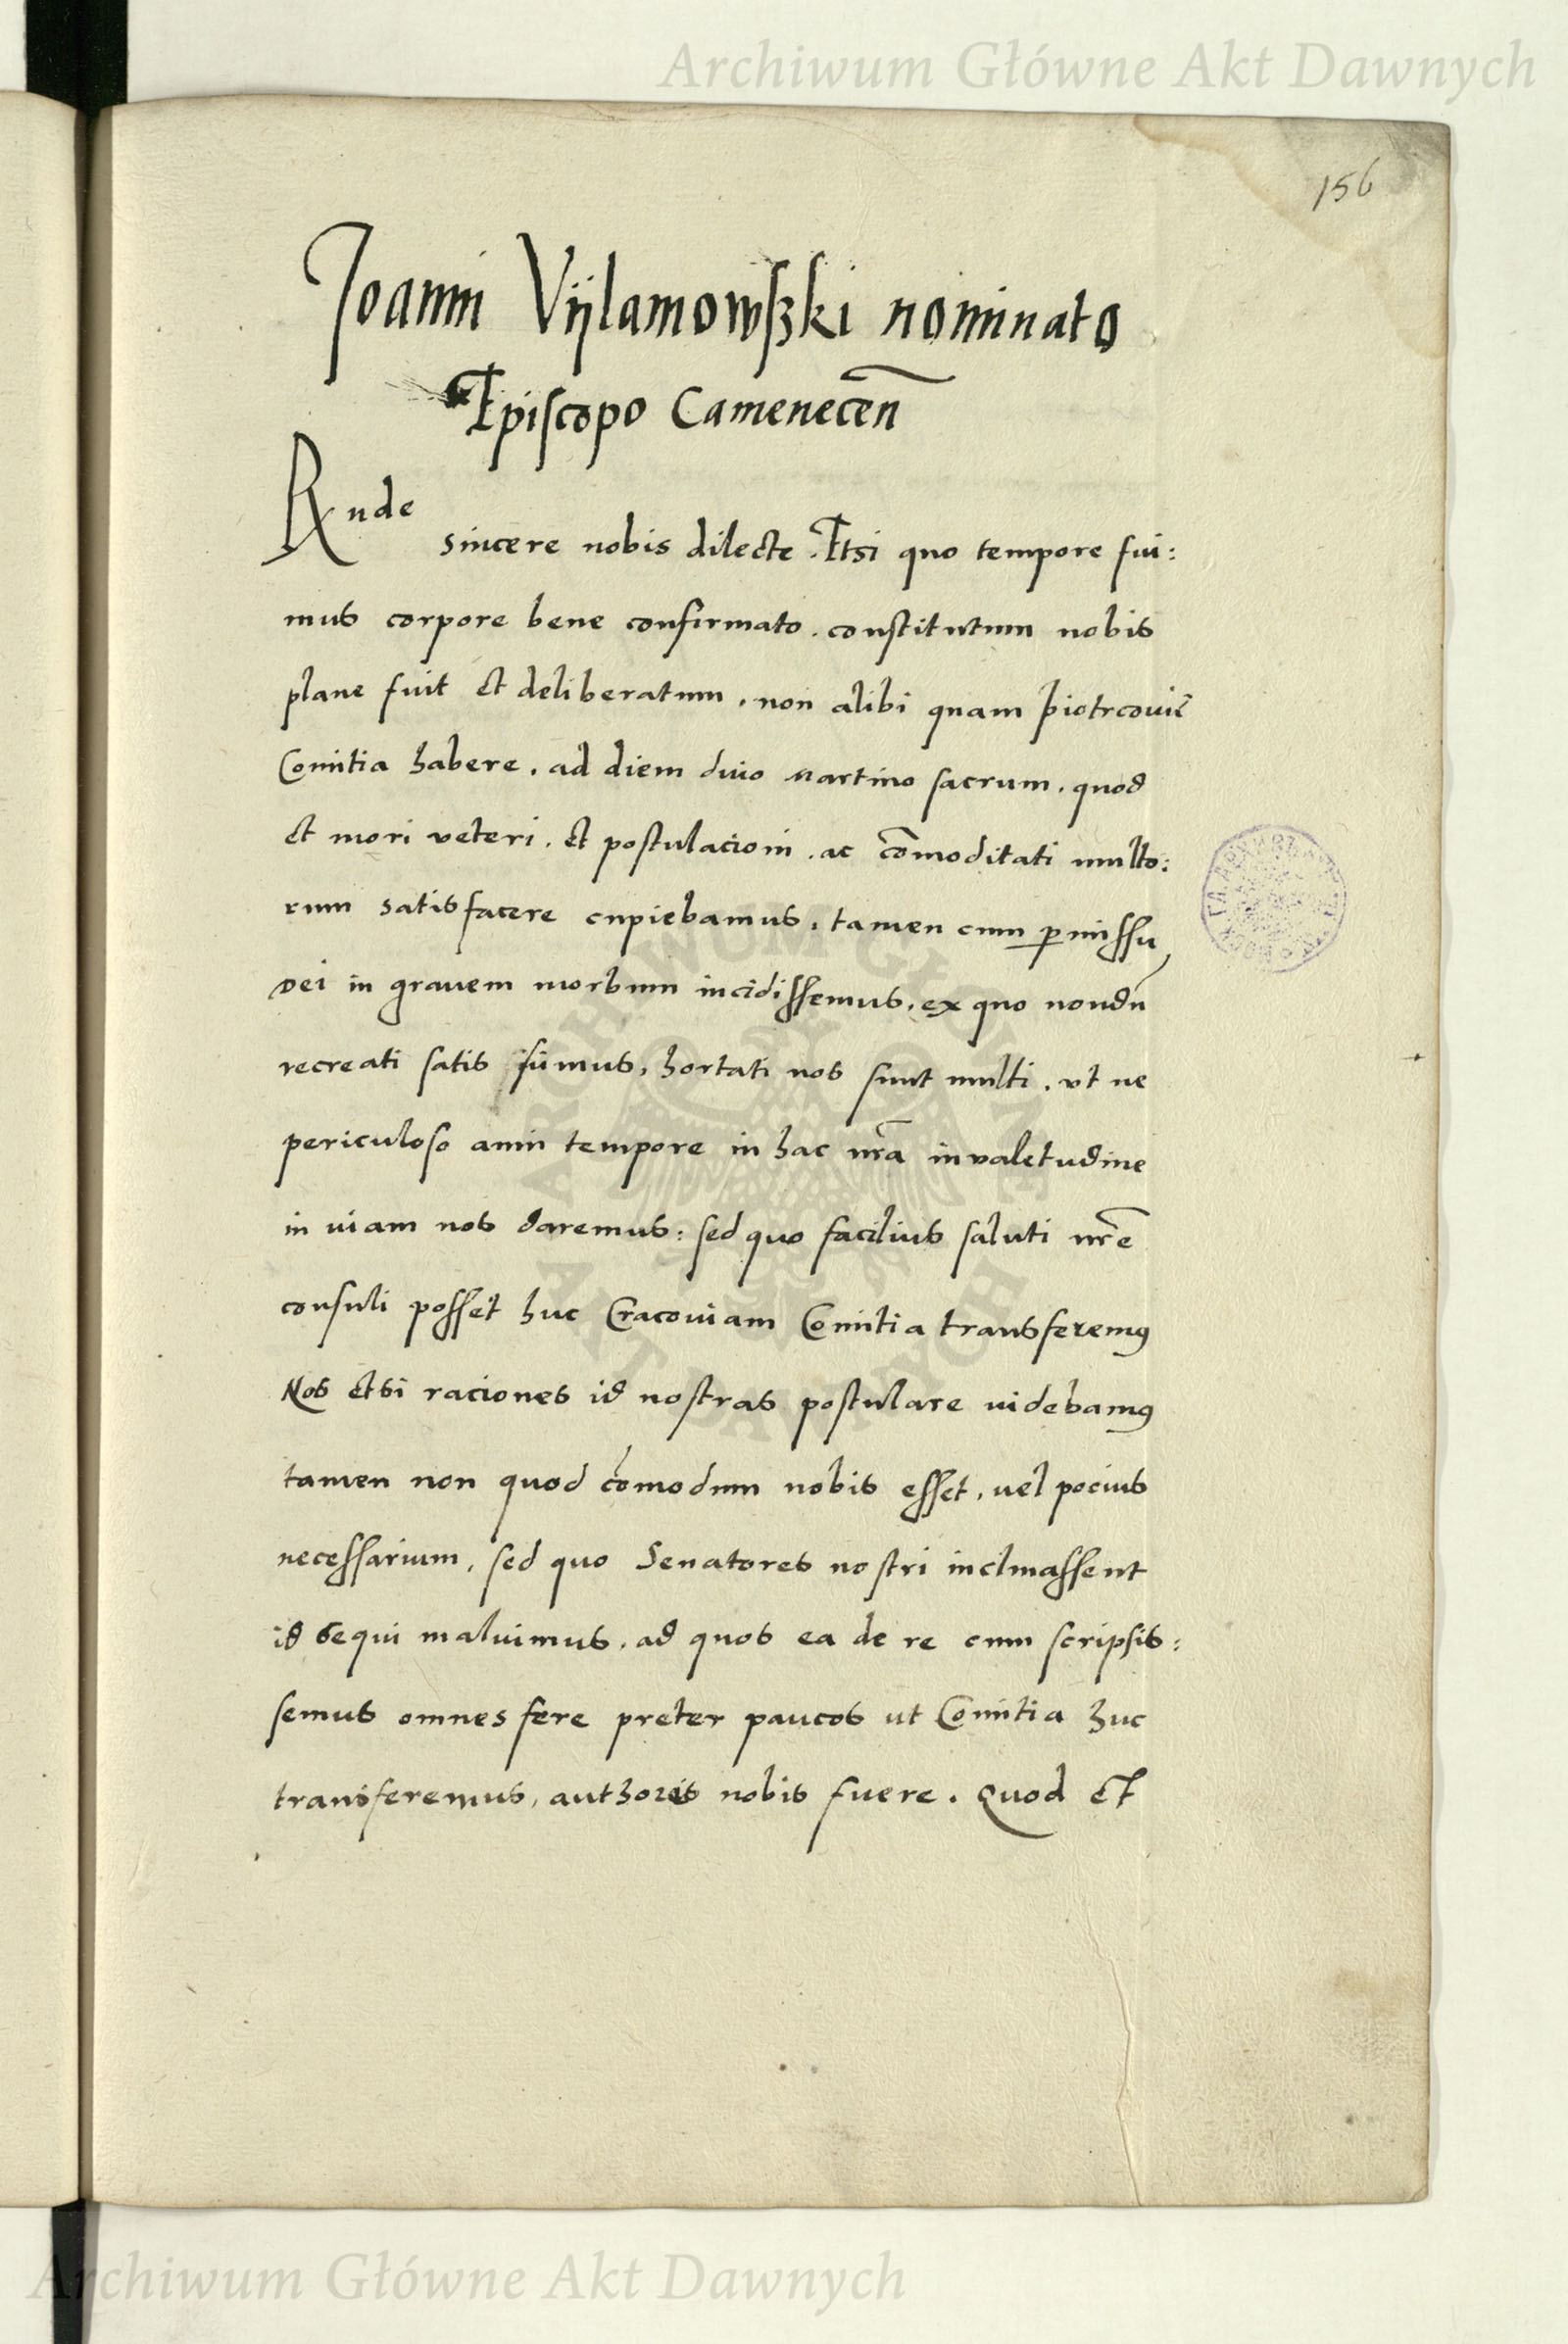 Archiwum Główne Akt Dawnych
156
Joanni Vijlamowſzki nominato
Epiſcopo Camenecen̄
Rnde
sincere nobis dilecte. Etsi quo tempore fui:
mus corpore bene confirmato. conſtitutum nobis
plane fuit et deliberatum, non alibi quam piotrcouiē
Comitia habere, ad diem diuo martino ſacrum, quod
et mori veteri, et poſtulacioni, ac cōmoditati multo:
rum satisfacere cupiebamus, tamen cum ꝑmiſſu
Dei in grauem morbum incidiſſemus, ex quo nondū
recreati ſatis ſumus, hortati nos ſunt multi, vt ne
periculoſo anni tempore in hac nr̄a invaletudine
in viam nos daremus: ſed quo facilius ſaluti nr̄e
conſuli poſſet huc Cracouiam Comitia transferemꝰ
Nos etsi raciones id noſtras poſtulare videbamꝰ
tamen non quod cōmodum nobis eſſet, uel pocius
neceſſarium, ſed quo Senatores noſtri inclinaſſent
id sequi maluimus, ad quos ea de re cum ſcripſis:
ſemus omnes fere preter paucos ut Comitia huc
transferemus, authores nobis fuere. Quod et
Archiwum Główne Akt Dawnych